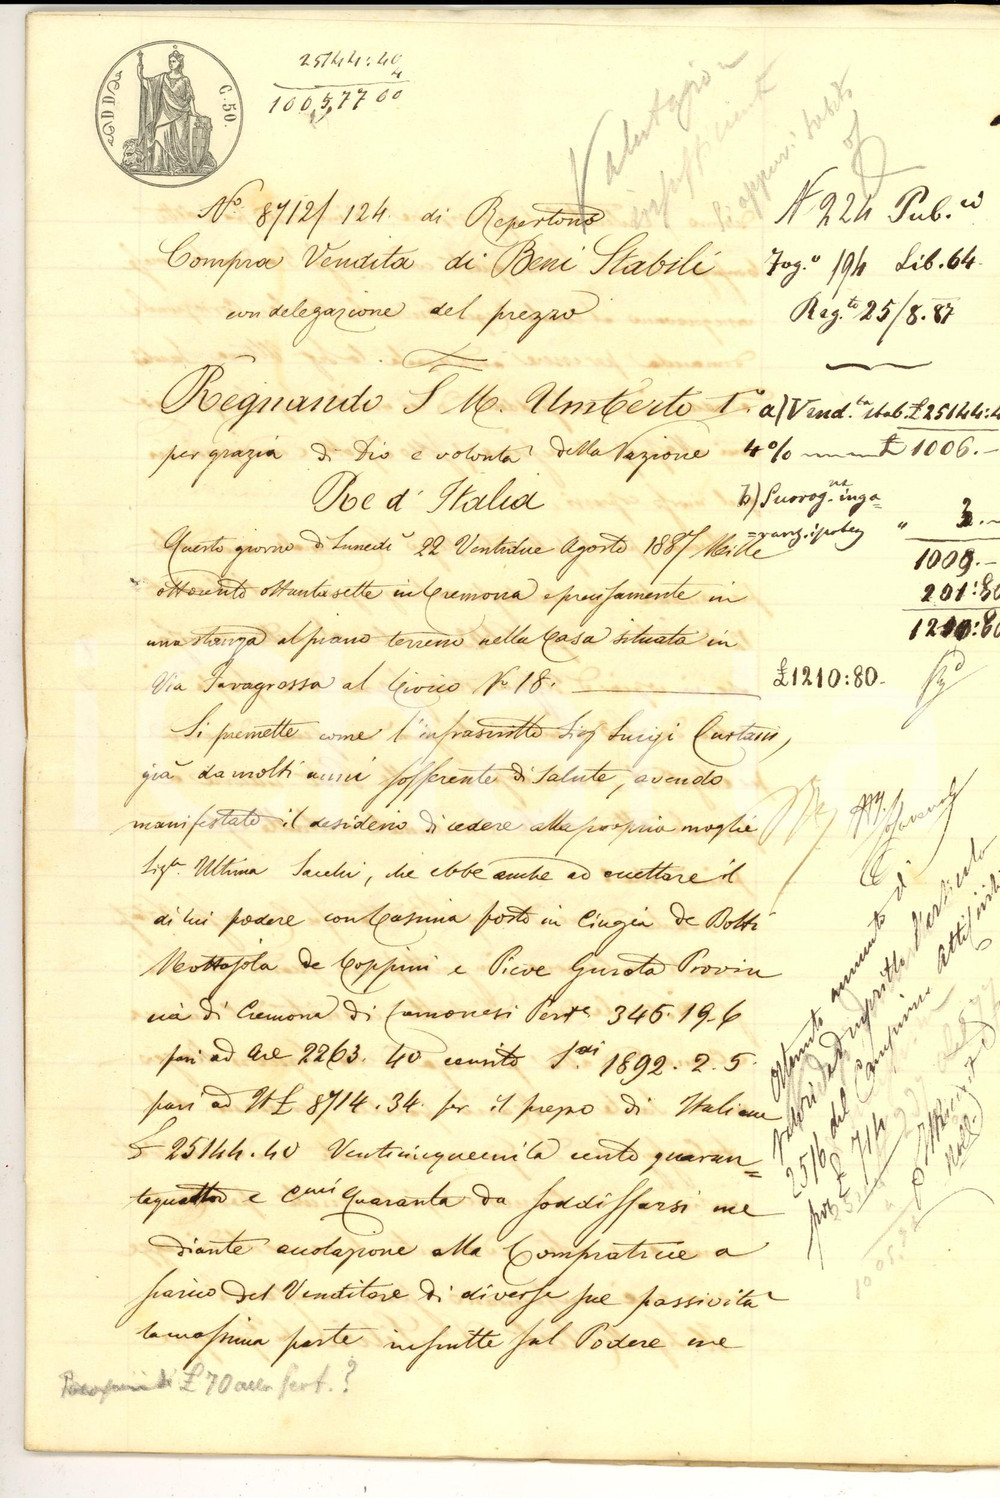 C. 50.
25144:40
4
100,577 60
Valutazione
insufficiente
Si appuri subito
N.° 8712/124 di Repertorio
Compra Vendita di Beni Stabili
con delegazione del prezzo
N 224 Pub.ci
Fog.° 194 Lib. 64
Reg.to 25/8.87
Regnando S. M. Umberto I.°
per grazia di Dio e volontà della Nazione
Re d'Italia
a) Vend.ta stab. £ 25144:4
4% £ 1006.-
b) Surrog.
" 3.-
1009.-
201:80
1210:80
£ 1210:80-
Questo giorno di Lunedì 22 Ventidue Agosto 1887 Mille
ottocento ottantasette in Cremona e precisamente in
una stanza al piano terreno nella Casa situata in
Via Favagrossa al Civico N.° 18.
Si premette come l'infrascritto Sig. Luigi Curtani,
già da molti anni sofferente di salute, avendo
manifestato il desiderio di cedere alla propria moglie
Sig.ra Ultima Sacchi, che ebbe anche ad accettare il
di lui podere con Cascina posto in Cingia de Botti
Mottajola de Coppini e Pieve Gurata Provin
cia di Cremona di Cremonesi Pert.e 345.19.6
pari ad Are 2263. 40 censito S.di 1892. 2. 5.
pari ad It £ 8714.34. per il prezzo di Italiane
£ 25144.40 Venticinquemila cento quaran=
taquattro e Cmi Quaranta da soddisfarsi me
diante accolazione alla Compratrice a
scarico del Venditore di diverse sue passività
la massima parte inscritte sul Podere me
Ottenuto aumento di
valori ed inscritto l'articolo
2516 del Campione
per £ 714
£ 70 alla pert.?